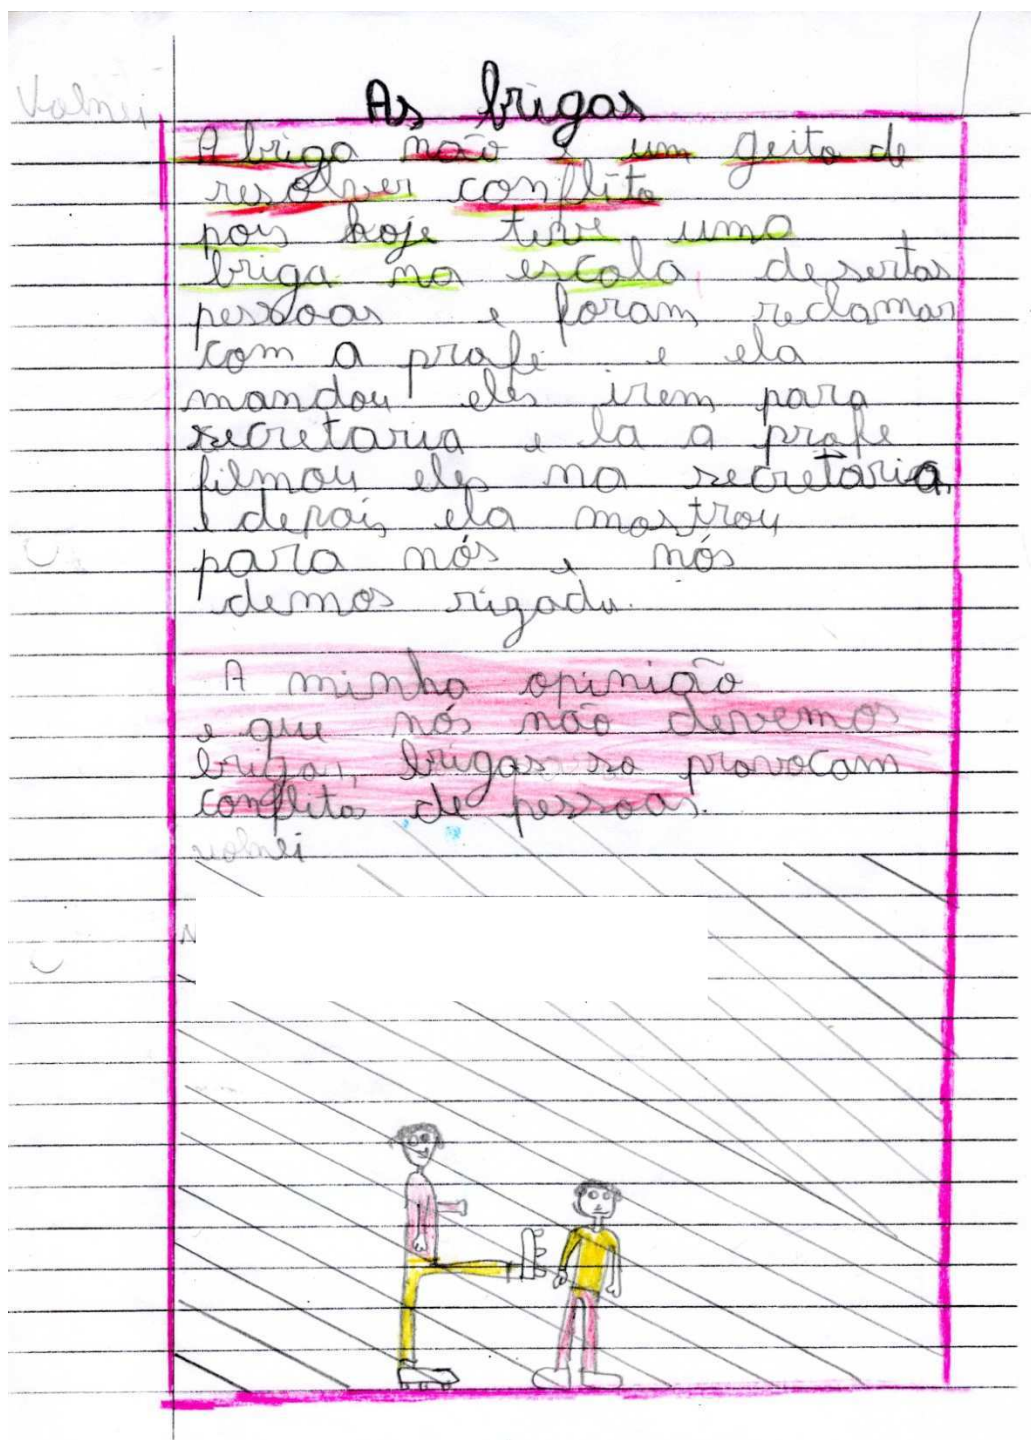 Volnei
As brigas
A briga não é um geito de
resolver conflito
pois hoje teve uma
briga na escola de sertas
pessoas e foram reclamar
com a profe e ela
mandou eles irem para
secretaria e la a profe
filmou eles na secretaria,
e depois ela mostrou
para nós e nós
demos rizada.
A minha opinião
e que nós não devemos
brigar, brigas so provocam
conflitos de pessoas.
volnei